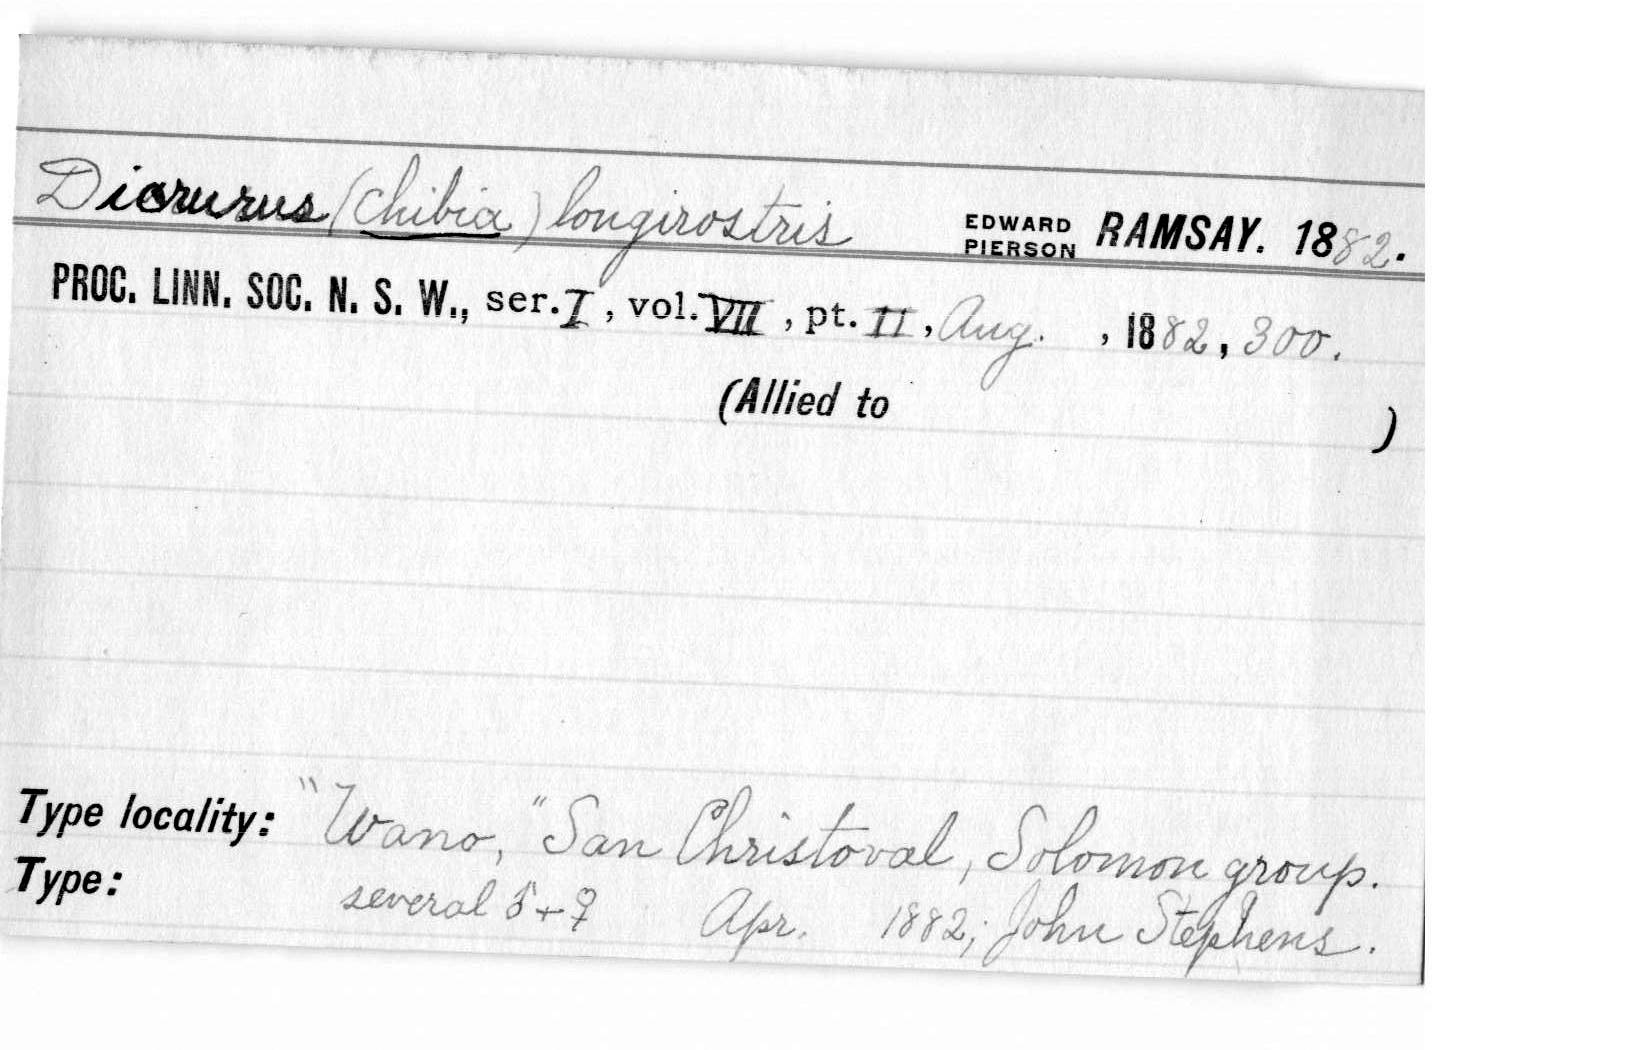 Dicrurus (Chibia) longirostris EDWARD PIERSON RAMSAY. 1882.
PROC. LINN. SOC. N. S. W., ser. I, vol. VII, pt. II, Aug. , 1882, 300.
(Allied to )
Type locality: "Wano," San Christoval, Solomon group.
Type: several ♂ + ♀ Apr. 1882; John Stephens.